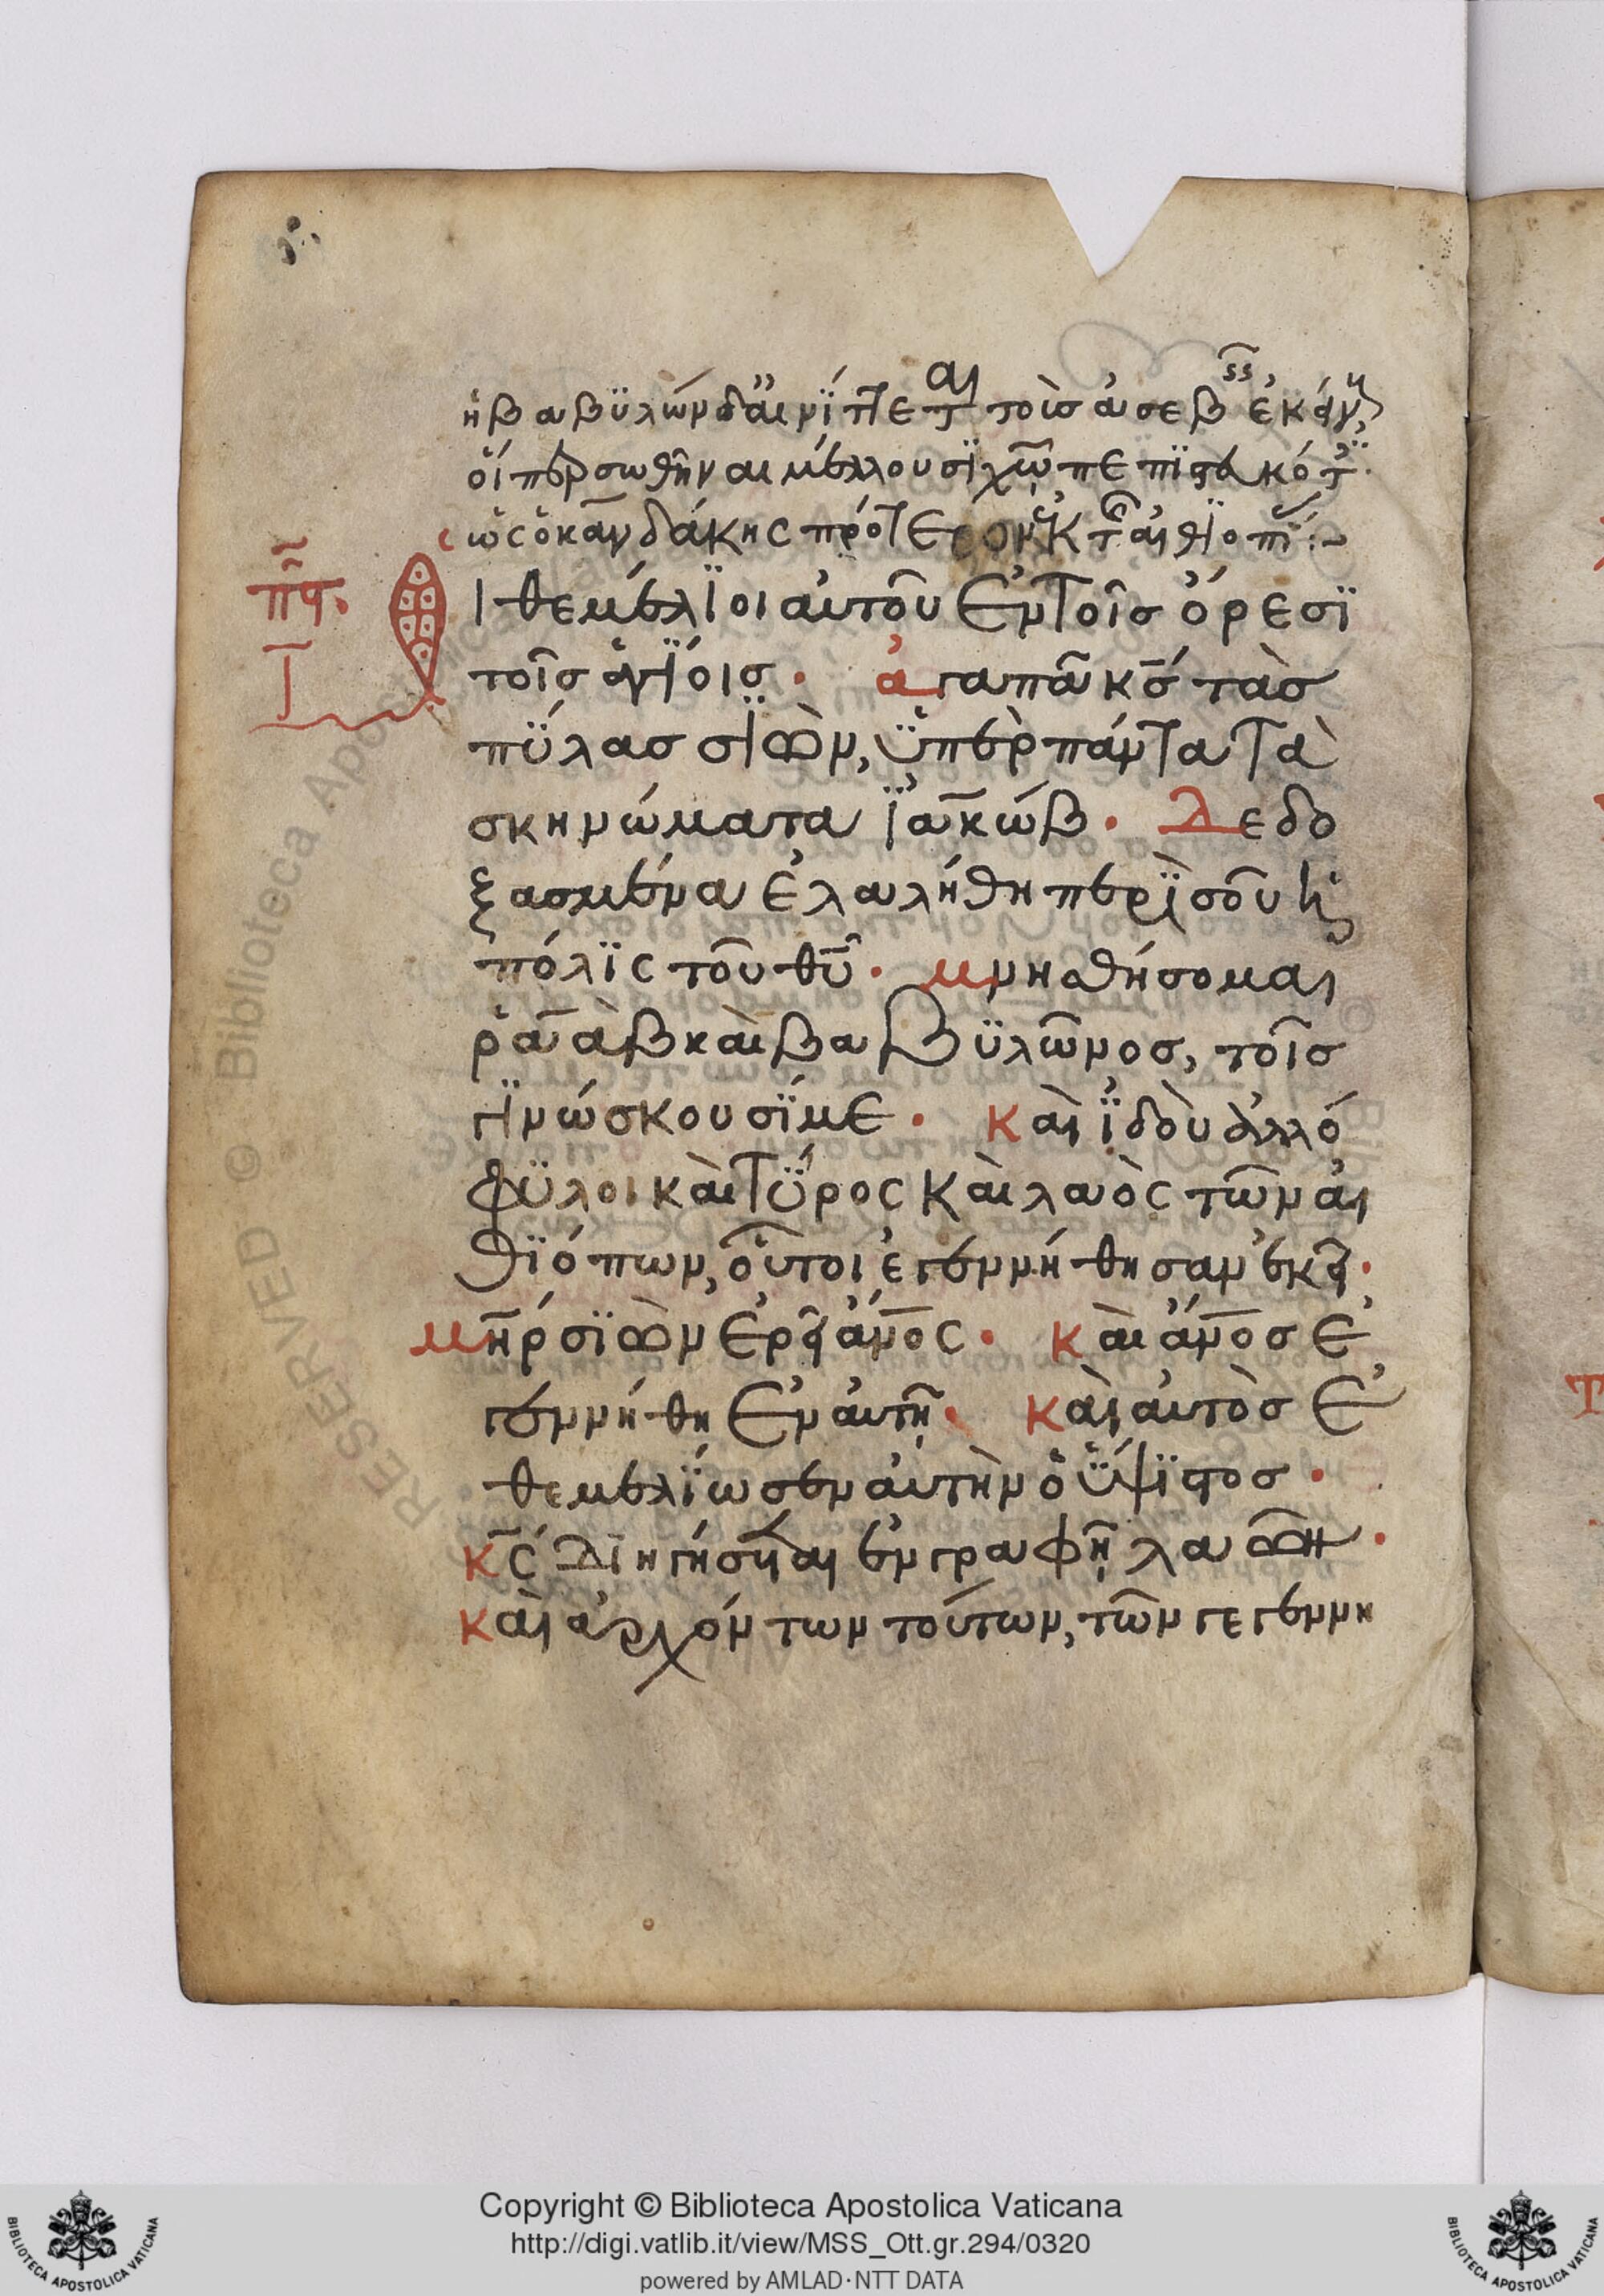 ἡ βαβϋλὼν δαιμϊ πε τοῖσ ἀσεβ ἐκάλ
οἵπερ σωθῆναι μέλλουσϊ χῶ πεπϊστακότ
ὡς ὁ κανδάκης πρότερον ἐκ τ αἰθϊοπί
Οϊ θεμέλϊοι αὐτοῦ ἐν τοῖσ ὄρεσϊ
τοῖσ ἁγϊοισ· ἀγαπᾶ κσ τὰσ
πΰλασ σϊὼν, ϋπὲρ πάντα τὰ
σκηνώματα ϊακώβ· Δεδο
ξασμένα ἐλαλήθη περὶ σοῦ ἡ
πόλϊς τοῦ θυ· μνησθήσομαι
ῥαὰβ καὶ βαβϋλῶνοσ, τοῖσ
γϊνώσκουσΐ με· Καὶ ϊδοὺ ἀλλό
φϋλοι καὶ τΰρος καὶ λαὸς τῶν αἰ
θϊόπων, οὗτοι ἐγεννήθησαν ἐκεῖ·
μηρ σϊὼν ἐρεῖ ἄνος· Καὶ ἄνοσ ἐ
γεννήθη ἐν αὐτῆ· Καὶ αὐτὸσ ἐ
θεμελΐωσεν αὐτὴν ὁ ὕψϊστοσ·
Κς Διηγήσεται ἐν γραφῆ λαῶν·
Καὶ ἀρχόντων τούτων, τῶν γεγεννη
RESERVED © Biblioteca Apo
Copyright © Biblioteca Apostolica Vaticana
http://digi.vatlib.it/view/MSS_Ott.gr.294/0320
powered by AMLAD·NTT DATA
BIBLIOTECA APOSTOLICA VATICANA
BIBLIOTECA APOSTOLICA VATICANA